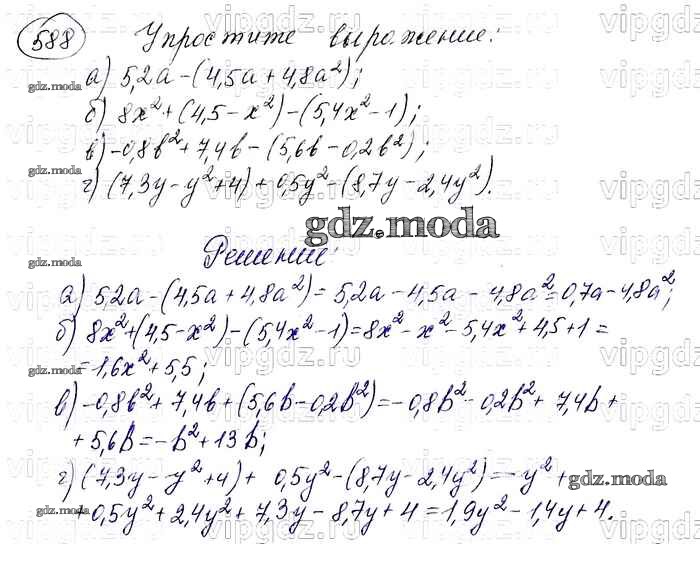 588 Упростите выражение:
а) 5,2a-(4,5a+4,8a²);
б) 8x²+(4,5-x²)-(5,4x²-1);
в) -0,8b²+7,4b-(5,6b-0,2b²);
г) (7,3y-y²+4)+0,5y²-(8,7y-2,4y²).
Решение:
а) 5,2a-(4,5a+4,8a²)=5,2a-4,5a-4,8a²=0,7a-4,8a²;
б) 8x²+(4,5-x²)-(5,4x²-1)=8x²-x²-5,4x²+4,5+1=
=1,6x²+5,5;
в) -0,8b²+7,4b+(5,6b-0,2b²)=-0,8b²-0,2b²+7,4b+
+5,6b=-b²+13b;
г) (7,3y-y²+4)+0,5y²-(8,7y-2,4y²)=-y²+
+0,5y²+2,4y²+7,3y-8,7y+4=1,9y²-1,4y+4.
gdz.moda
vipgdz.ru